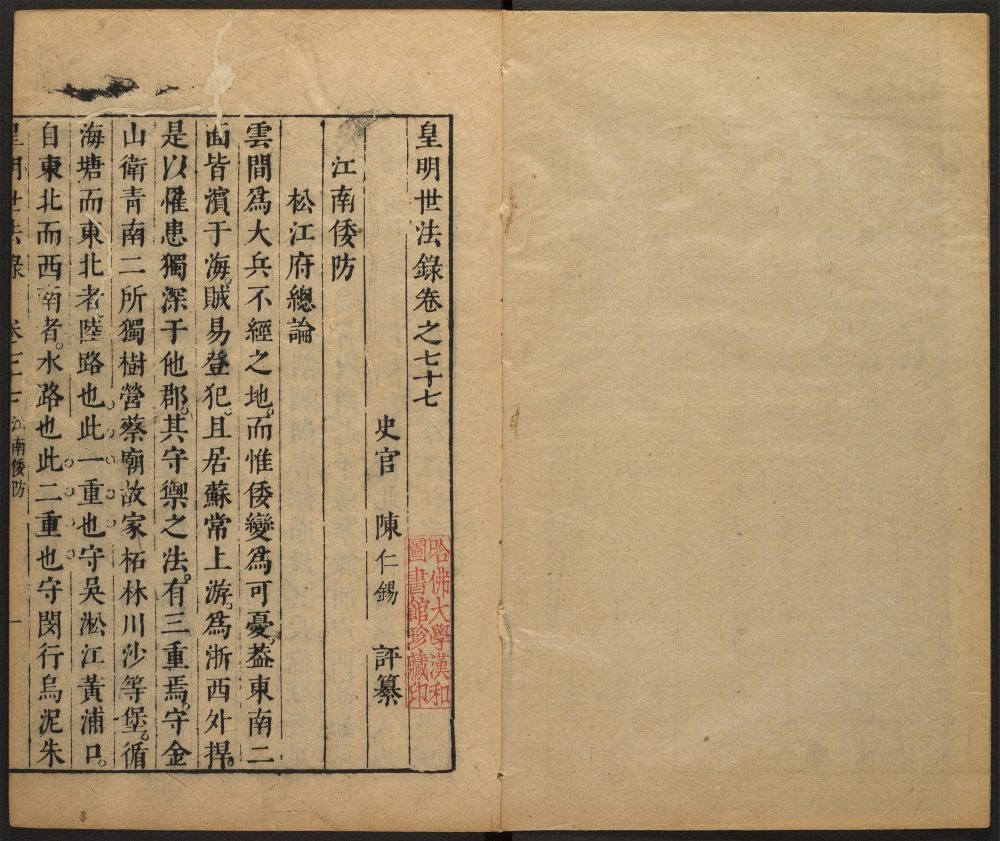 皇明世法錄卷之七十七
史官 陳仁錫 評纂
江南倭防
松江府總論
雲間爲大兵不經之地。而惟倭變爲可憂。葢東南二
面皆濱于海。賊易登犯。且居蘇常上游。爲浙西外捍。
是以罹患獨深于他郡。其守禦之法。有三重焉。守金
山衛青南二所獨樹營蔡廟故家柘林川沙等堡。循
海塘而東北者。陸路也。此一重也。守吴淞江黃浦口。
自東北而西南者。水路也。此二重也。守閔行烏泥朱
皇明世法錄 卷之七十七 江南倭防 一
哈佛大學漢和
圖書館珍藏印